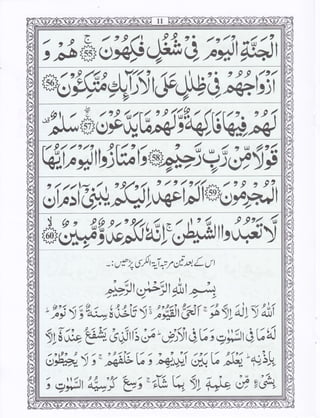 11
الْجَنَّةِ الْيَوْمَ فِيْ شُغُلٍ فٰكِهُوْنَ ۚ ﴿55﴾ هُمْ وَ
اَزْوَاجُهُمْ فِيْ ظِلٰلٍ عَلَى الْاَرَآئِكِ مُتَّكِـُٔوْنَ ﴿56﴾
لَهُمْ فِيْهَا فَاكِهَةٌ وَّلَهُمْ مَّا يَدَّعُوْنَ ۚ ﴿57﴾ سَلٰمٌ
قَوْلًا مِّنْ رَّبٍّ رَّحِيْمٍ ﴿58﴾ وَامْتَازُوا الْيَوْمَ اَيُّهَا
الْمُجْرِمُوْنَ ﴿59﴾ اَلَمْ اَعْهَدْ اِلَيْكُمْ يٰبَنِيْٓ اٰدَمَ اَنْ
لَّا تَعْبُدُوا الشَّيْطٰنَ ۚ اِنَّهٗ لَكُمْ عَدُوٌّ مُّبِيْنٌ ﴿60﴾
اس کے بعد تین مرتبہ آیۃ الکرسی پڑھیں:۔
بِسْمِ اللهِ الرَّحْمٰنِ الرَّحِيْمِ
اَللهُ لَآ اِلٰهَ اِلَّا هُوَ ۚ اَلْحَيُّ الْقَيُّوْمُ ۚ لَا تَاْخُذُهٗ سِنَةٌ وَّلَا نَوْمٌ ؕ
لَهٗ مَا فِي السَّمٰوٰتِ وَمَا فِي الْاَرْضِ ؕ مَنْ ذَا الَّذِيْ يَشْفَعُ عِنْدَهٗٓ اِلَّا
بِاِذْنِهٖ ؕ يَعْلَمُ مَا بَيْنَ اَيْدِيْهِمْ وَمَا خَلْفَهُمْ ۚ وَلَا يُحِيْطُوْنَ
بِشَيْءٍ مِّنْ عِلْمِهٖٓ اِلَّا بِمَا شَآءَ ۚ وَسِعَ كُرْسِيُّهُ السَّمٰوٰتِ وَ